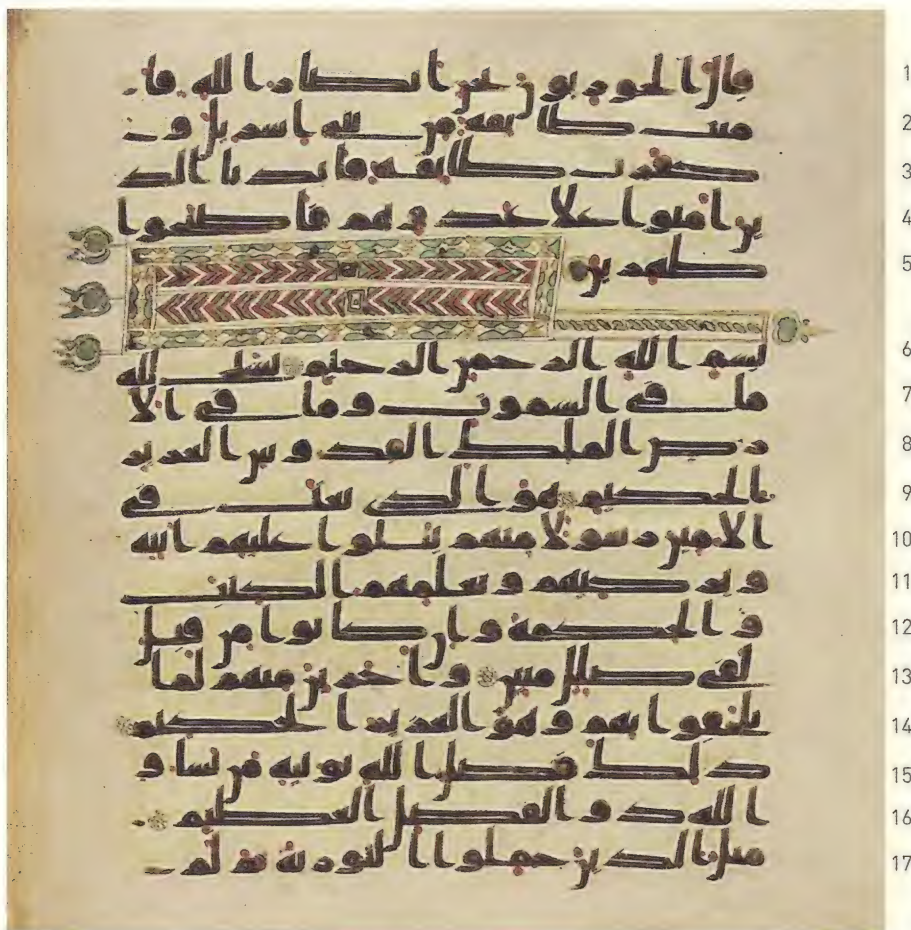 1 قال الحوريون نحن انصار الله فا
2 منت طائفة من بني اسريل و
3 كفرت طائفة فايدنا الذ
4 ين امنوا على عدوهم فاصبحوا
5 ظهرين
6 بسم الله الرحمن الرحيم يسبح لله
7 ما في السموت وما في الا
8 رض الملك القدوس العزيز
9 الحكيم هو الذي بعث في
10 الامين رسولا منهم يتلوا عليهم ايته
11 ويزكيهم ويعلمهم الكتب
12 والحكمة وان كانوا من قبل
13 لفي ضلل مبين واخرين منهم لما
14 يلحقوا بهم وهو العزيز الحكيم
15 ذلك فضل الله يوتيه من يشا و
16 الله ذو الفضل العظيم
17 مثل الذين حملوا التورية ثم لم